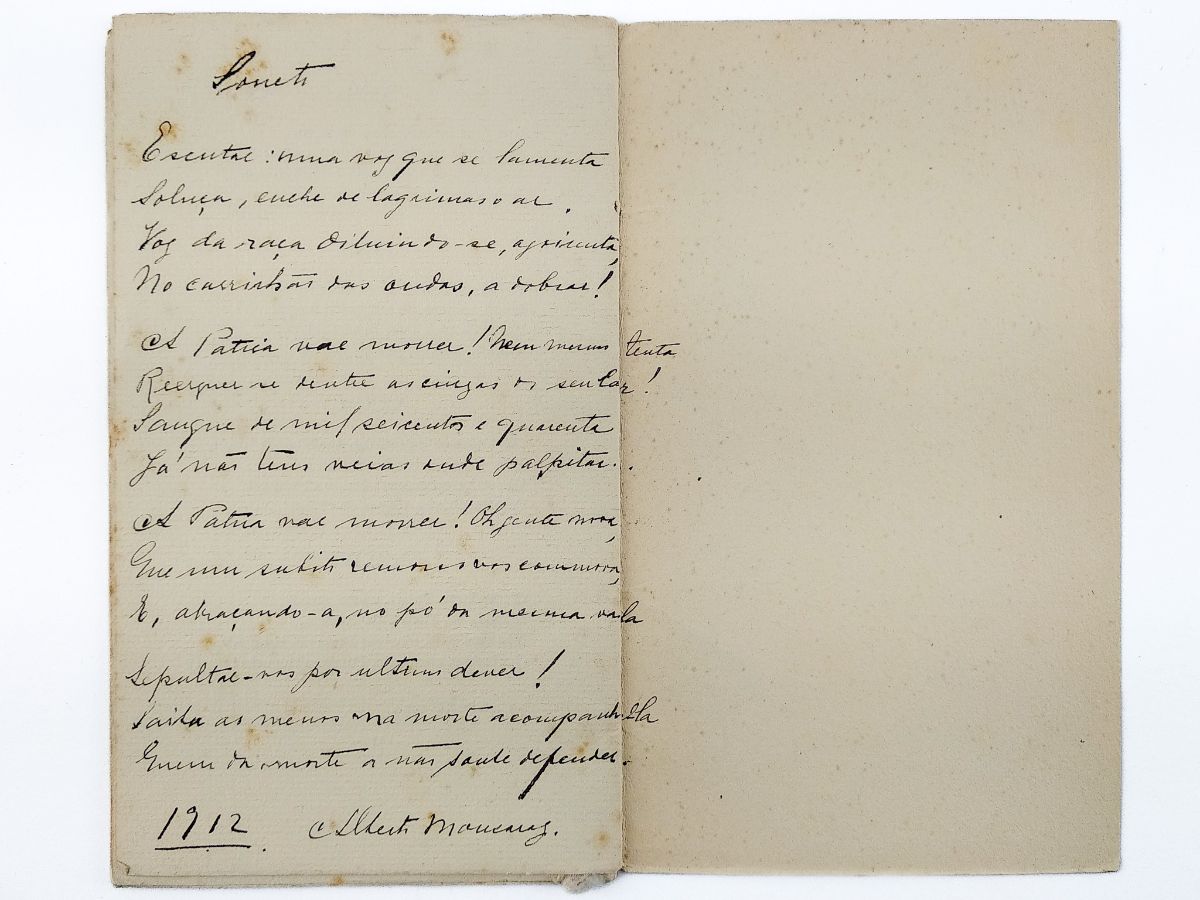 Soneto
Escutae: uma voz que se lamenta
Soluça, enche de lagrimas o ar.
Voz da raça diluindo-se, agoirenta,
No carrilhão das ondas, a dobrar!
A Patria vae morrer! Nem mesmo tenta
Reerguer-se dentre as cinzas do seu lar!
Sangue de mil seiscentos e quarenta
Já não tens veias onde palpitar..
A Patria vae morrer! Oh gente nova,
Que um subito remorso vos commova,
E, abraçando-a, no pó da mesma vala
Sepultae-vos por ultimo dever!
Saiba ao menos na morte acompanhal-a
Quem da morte a não soube defender.
1912. Alberto Monsaraz.